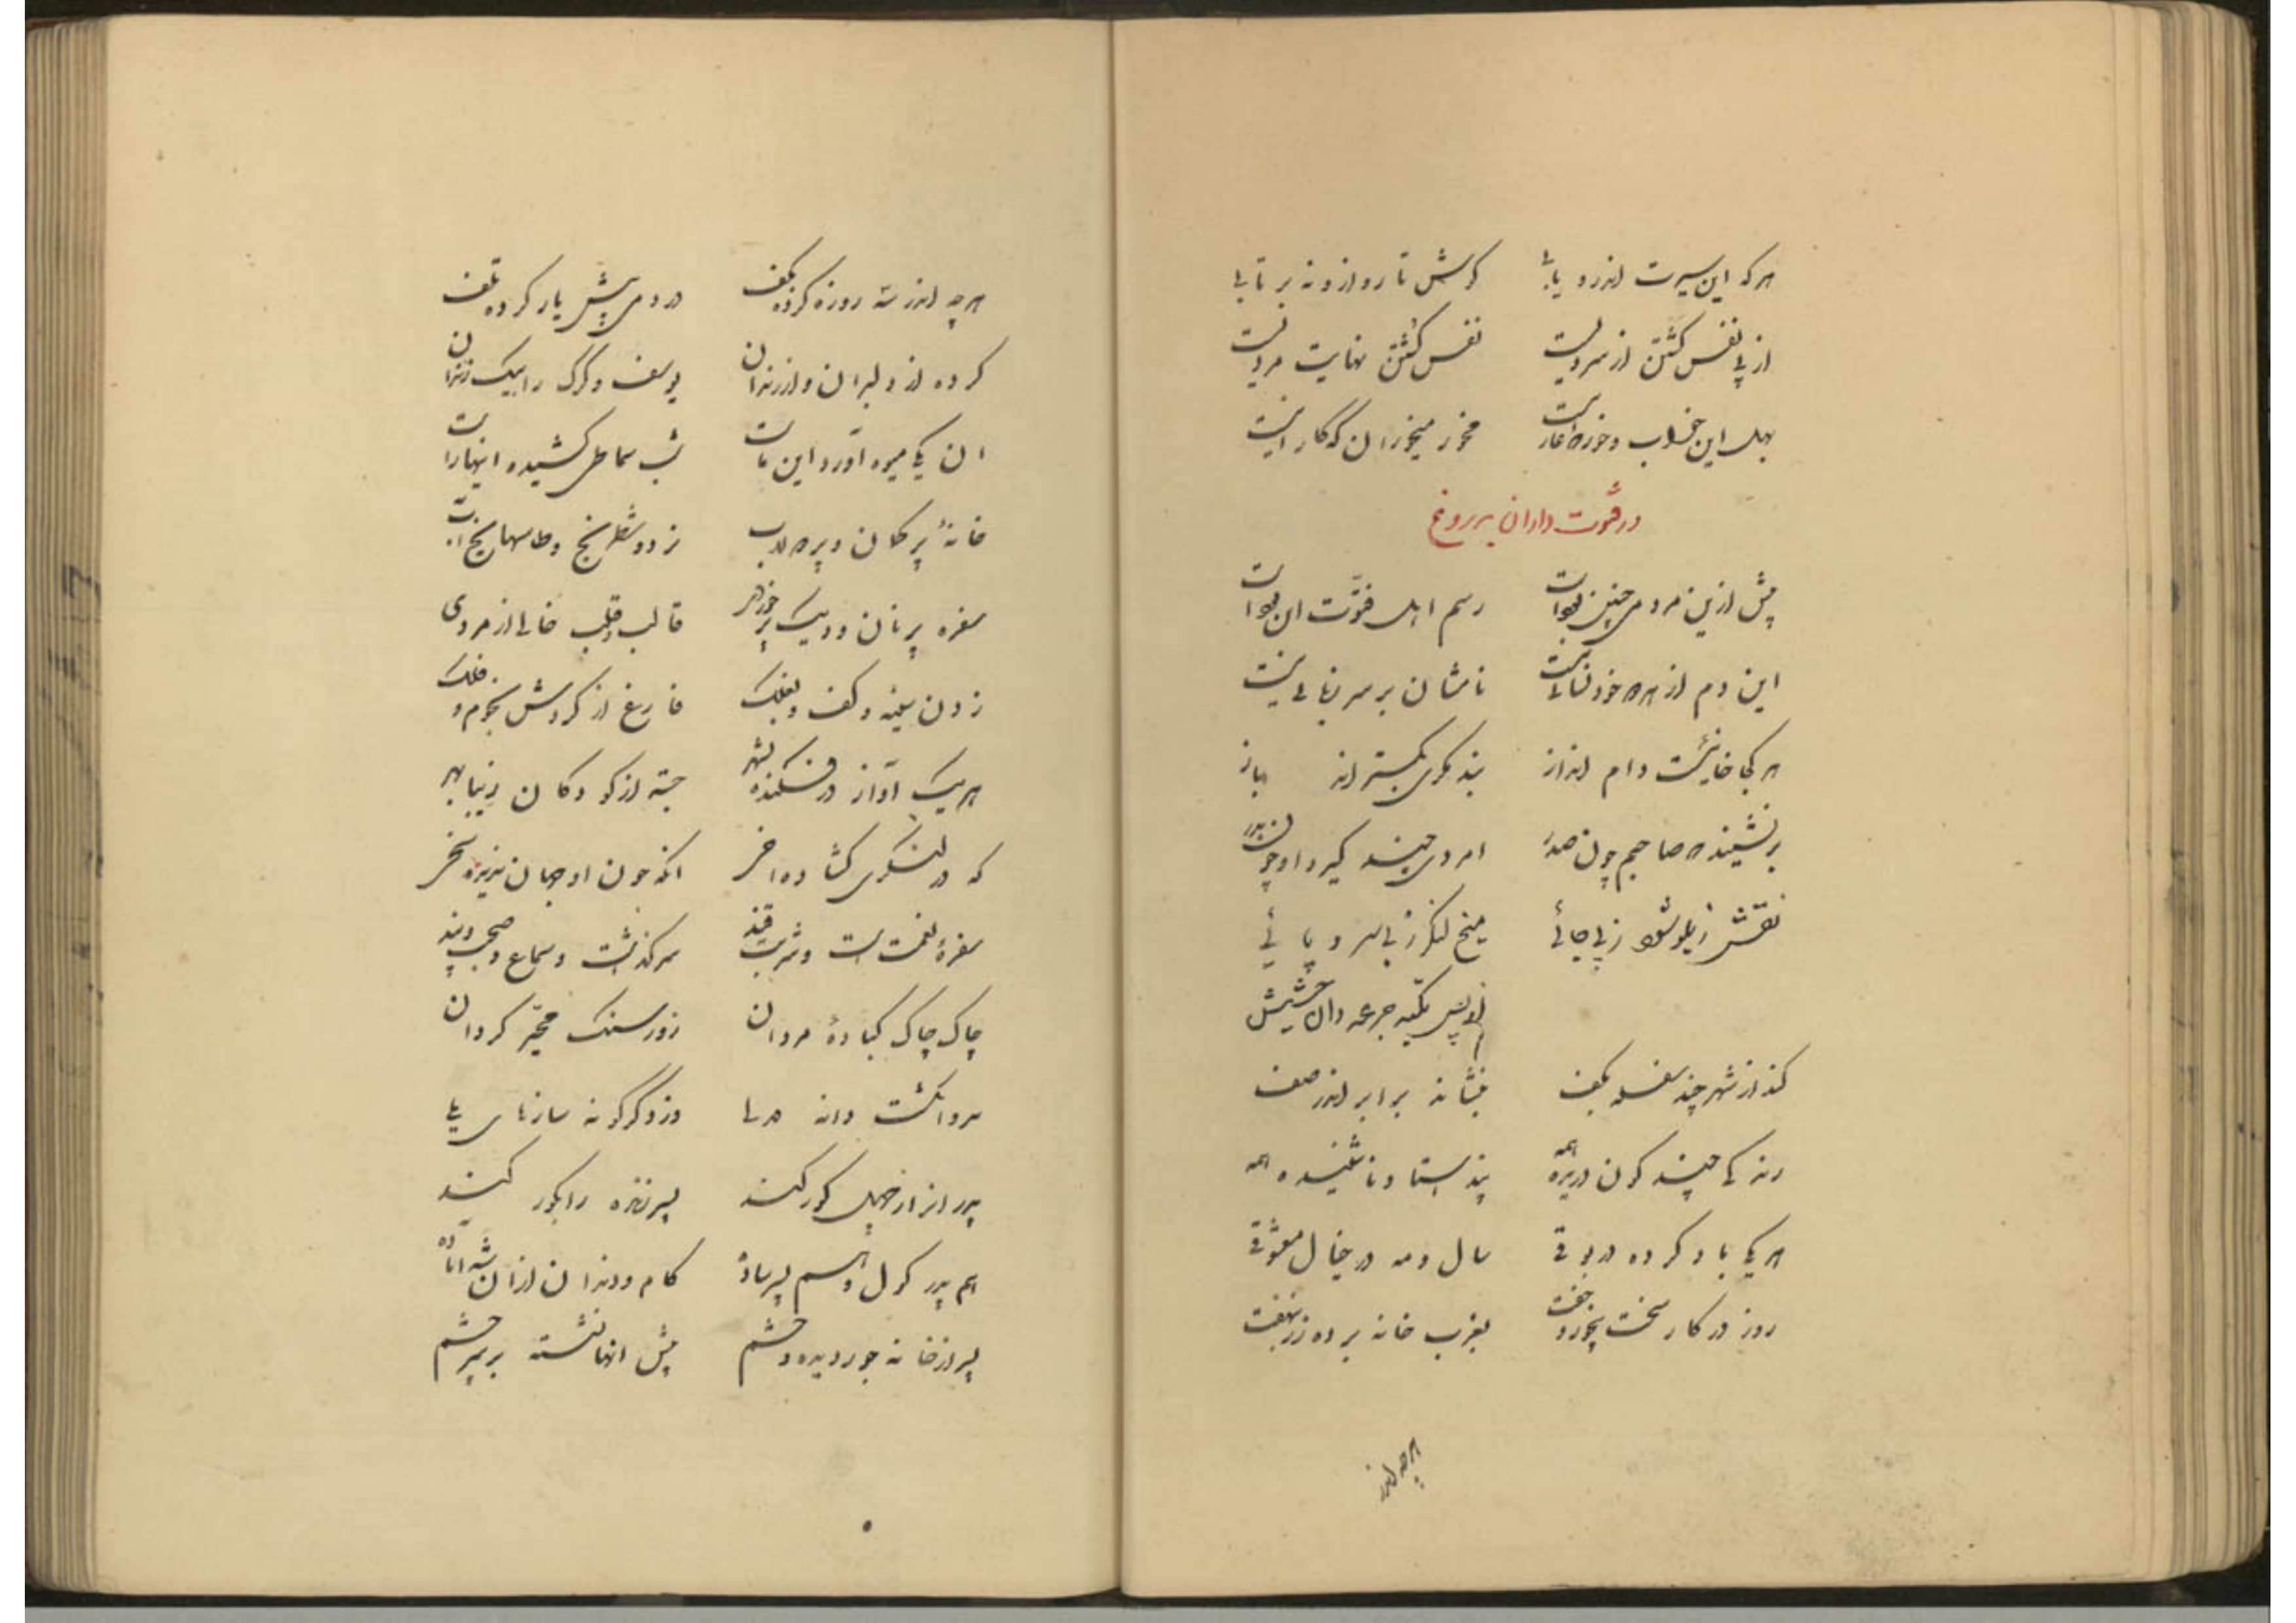 هر که این سیرت اندرو یابی کوش تا رو ازو نه بر تابی
از پی نفس کشتن از سردیست نفس کشتن نهایت مردیست
بهل این خواب و خور که عار اینست مخور میخوران که کار اینست
در فتوت داران بدروغ
پیش ازین مردمی چنین بودست رسم اهل فتوت این بودست
این دم از بهر خودنمائی نیست نامشان بر سر زبانی نیست
هر کجا خانیست دام انداز بند مکری بگستراند باز
بر نشیند که صاحبم چون صدر امردی چند گرد او چون بدر
نقش زیلوش زپی جائی میخ لنگر زبی سر و پائی
از پس تکیه جرعه دان حشیش
کند از شهر چند سفله بکف بنشاند برابر اندر صف
رندکی چند کون دریده همه پند استاد ناشنیده همه
هر یکی باد کرده در بوقی سال و مه در خیال معشوقی
روز در کار سخت بخورد و خفت بغرب خانه برده زر بنهفت
هر چه اندر
هر چه اندر سه روزه کرده بکف در دمی پیش یار کرده تلف
کرده از دلبران و از رندان یوسف و گرگ را بیک زندان
آن یکی میوه آورد این ماست شب سماطی کشیده اینها راست
خانهٔ پر کمان و پر جلاب نرد و شطرنج و طاسهای یخ آب
سفره پر نان و دیک پر خوردی قالب و قلب خالی از مردی
زدن سینه و کف و بغلک فارغ از گردش نجوم و فلک
هر یک آواز در فکنده بشهر جسته از کودکان زیبا بهر
که در لنگری گشاده اخی آنکه چون او جهان ندیده سخی
سفرهٔ نعمت است و شربت قند سرگذشت و سماع و صحبت و پند
چاک چاک کبادهٔ مردان زور سنگ محجر گردان
سرو انگشت دانه دزد گرگونه سازنای
پدر انرا از جهل کور کند پسر تازه را بکور کند
هم پدر گول و هم پسر ساده کام و دندان ازان شده آماده
پسر از خانه جور دیده و خشم پیش آنها نشسته بر سر چشم